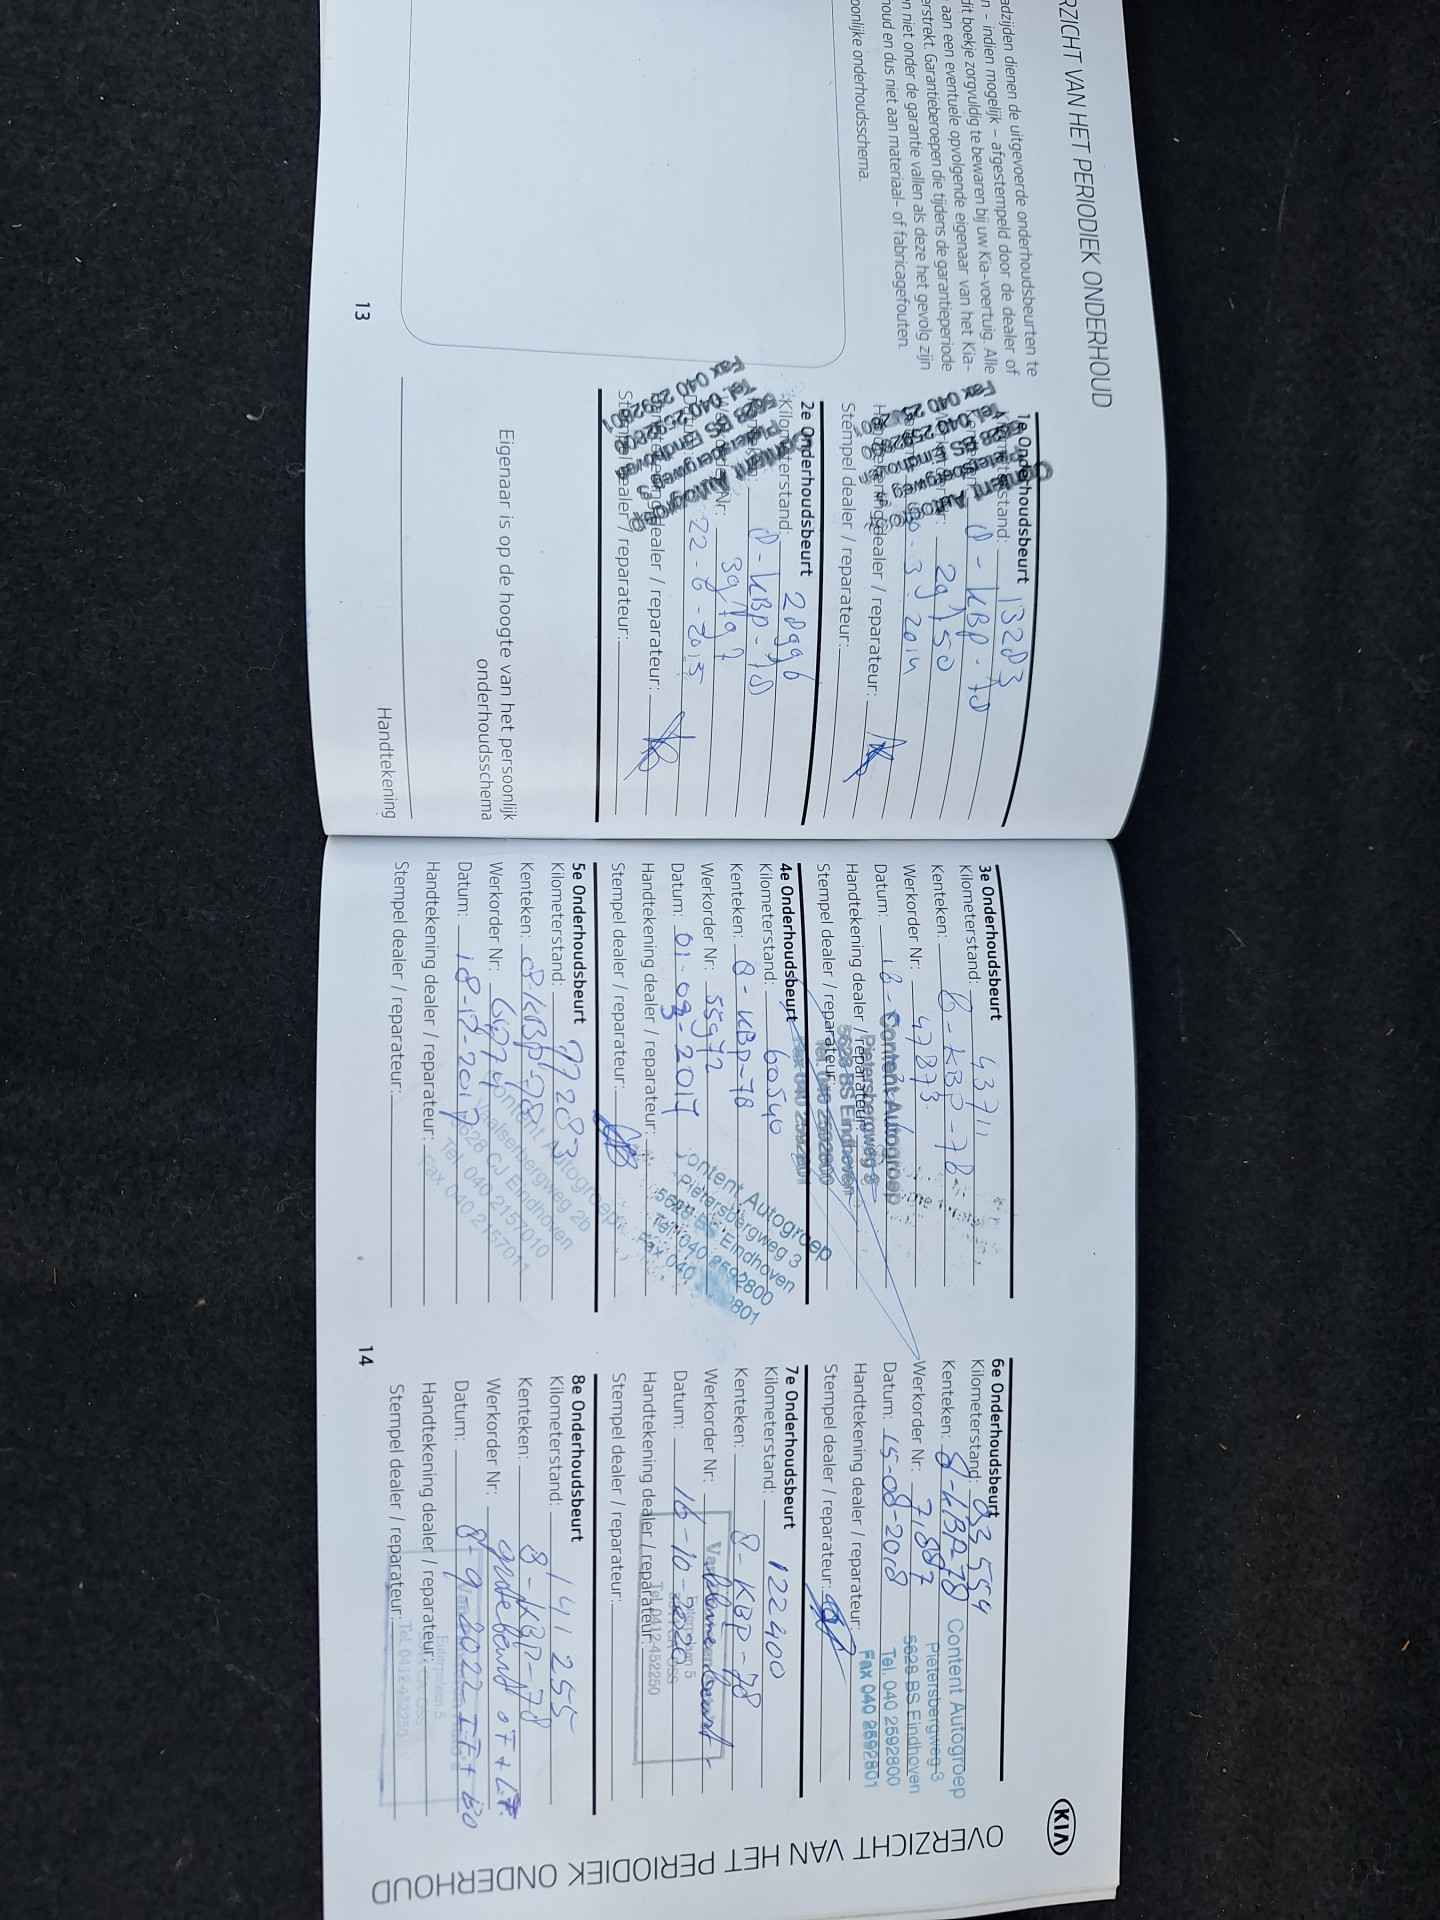 RZICHT VAN HET PERIODIEK ONDERHOUD
adzijden dienen de uitgevoerde onderhoudsbeurten te
n - indien mogelijk - afgestempeld door de dealer of
dit boekje zorgvuldig te bewaren bij uw Kia-voertuig. Alle
aan een eventuele opvolgende eigenaar van het Kia-
erstrekt. Garantieberoepen die tijdens de garantieperiode
n niet onder de garantie vallen als deze het gevolg zijn
houd en dus niet aan materiaal- of fabricagefouten.
oonlijke onderhoudsschema.
13
1e Onderhoudsbeurt
Kilometerstand: 13283
8-KBP-78
2014
Handtekening dealer / reparateur:
Stempel dealer / reparateur:
Content Autogroep
Pietersbergweg 3
5628 BS Eindhoven
Tel. 040 2592800
Fax 040 2592801
2e Onderhoudsbeurt
Kilometerstand: 28996
8-KBP-78
Datum: 22-6-2015
Handtekening dealer / reparateur:
Stempel dealer / reparateur:
Content Autogroep
Pietersbergweg 3
5628 BS Eindhoven
Tel. 040 2592800
Fax 040 2592801
Eigenaar is op de hoogte van het persoonlijk
onderhoudsschema
Handtekening
3e Onderhoudsbeurt
Kilometerstand: 43711
Kenteken: 8-KBP-78
Werkorder Nr: 47873
Datum:
Handtekening dealer / reparateur:
Stempel dealer / reparateur:
Content Autogroep
Pietersbergweg 3
5628 BS Eindhoven
Tel. 040 2592800
Fax 040 2592801
4e Onderhoudsbeurt
Kilometerstand: 60540
Kenteken: 8-KBP-78
Werkorder Nr: 55972
Datum: 01-03-2017
Handtekening dealer / reparateur:
Stempel dealer / reparateur:
Content Autogroep
Pietersbergweg 3
5628 BS Eindhoven
Tel. 040 2592800
Fax 040 2592801
5e Onderhoudsbeurt
Kilometerstand: 77283
Kenteken: 8-KBP-78
Werkorder Nr:
Datum: 18-12-2017
Handtekening dealer / reparateur:
Stempel dealer / reparateur:
Content Autogroep
5628 CJ Eindhoven
Tel. 040 2157010
Fax 040 2157011
14
6e Onderhoudsbeurt
Kilometerstand: 93554
Kenteken: 8-KBP-78
Werkorder Nr: 71887
Datum: 15-08-2018
Handtekening dealer / reparateur:
Stempel dealer / reparateur:
Content Autogroep
Pietersbergweg 3
5628 BS Eindhoven
Tel. 040 2592800
Fax 040 2592801
7e Onderhoudsbeurt
Kilometerstand: 122400
Kenteken: 8-KBP-78
Werkorder Nr:
Datum: 16-10-2020
Handtekening dealer / reparateur:
Stempel dealer / reparateur:
Tel. 0412-452250
8e Onderhoudsbeurt
Kilometerstand: 141255
Kenteken: 8-KBP-78
Werkorder Nr: grote beurt
Datum: 8-9-2022
Handtekening dealer / reparateur:
Stempel dealer / reparateur:
Tel. 0412-452250
KIA
OVERZICHT VAN HET PERIODIEK ONDERHOUD